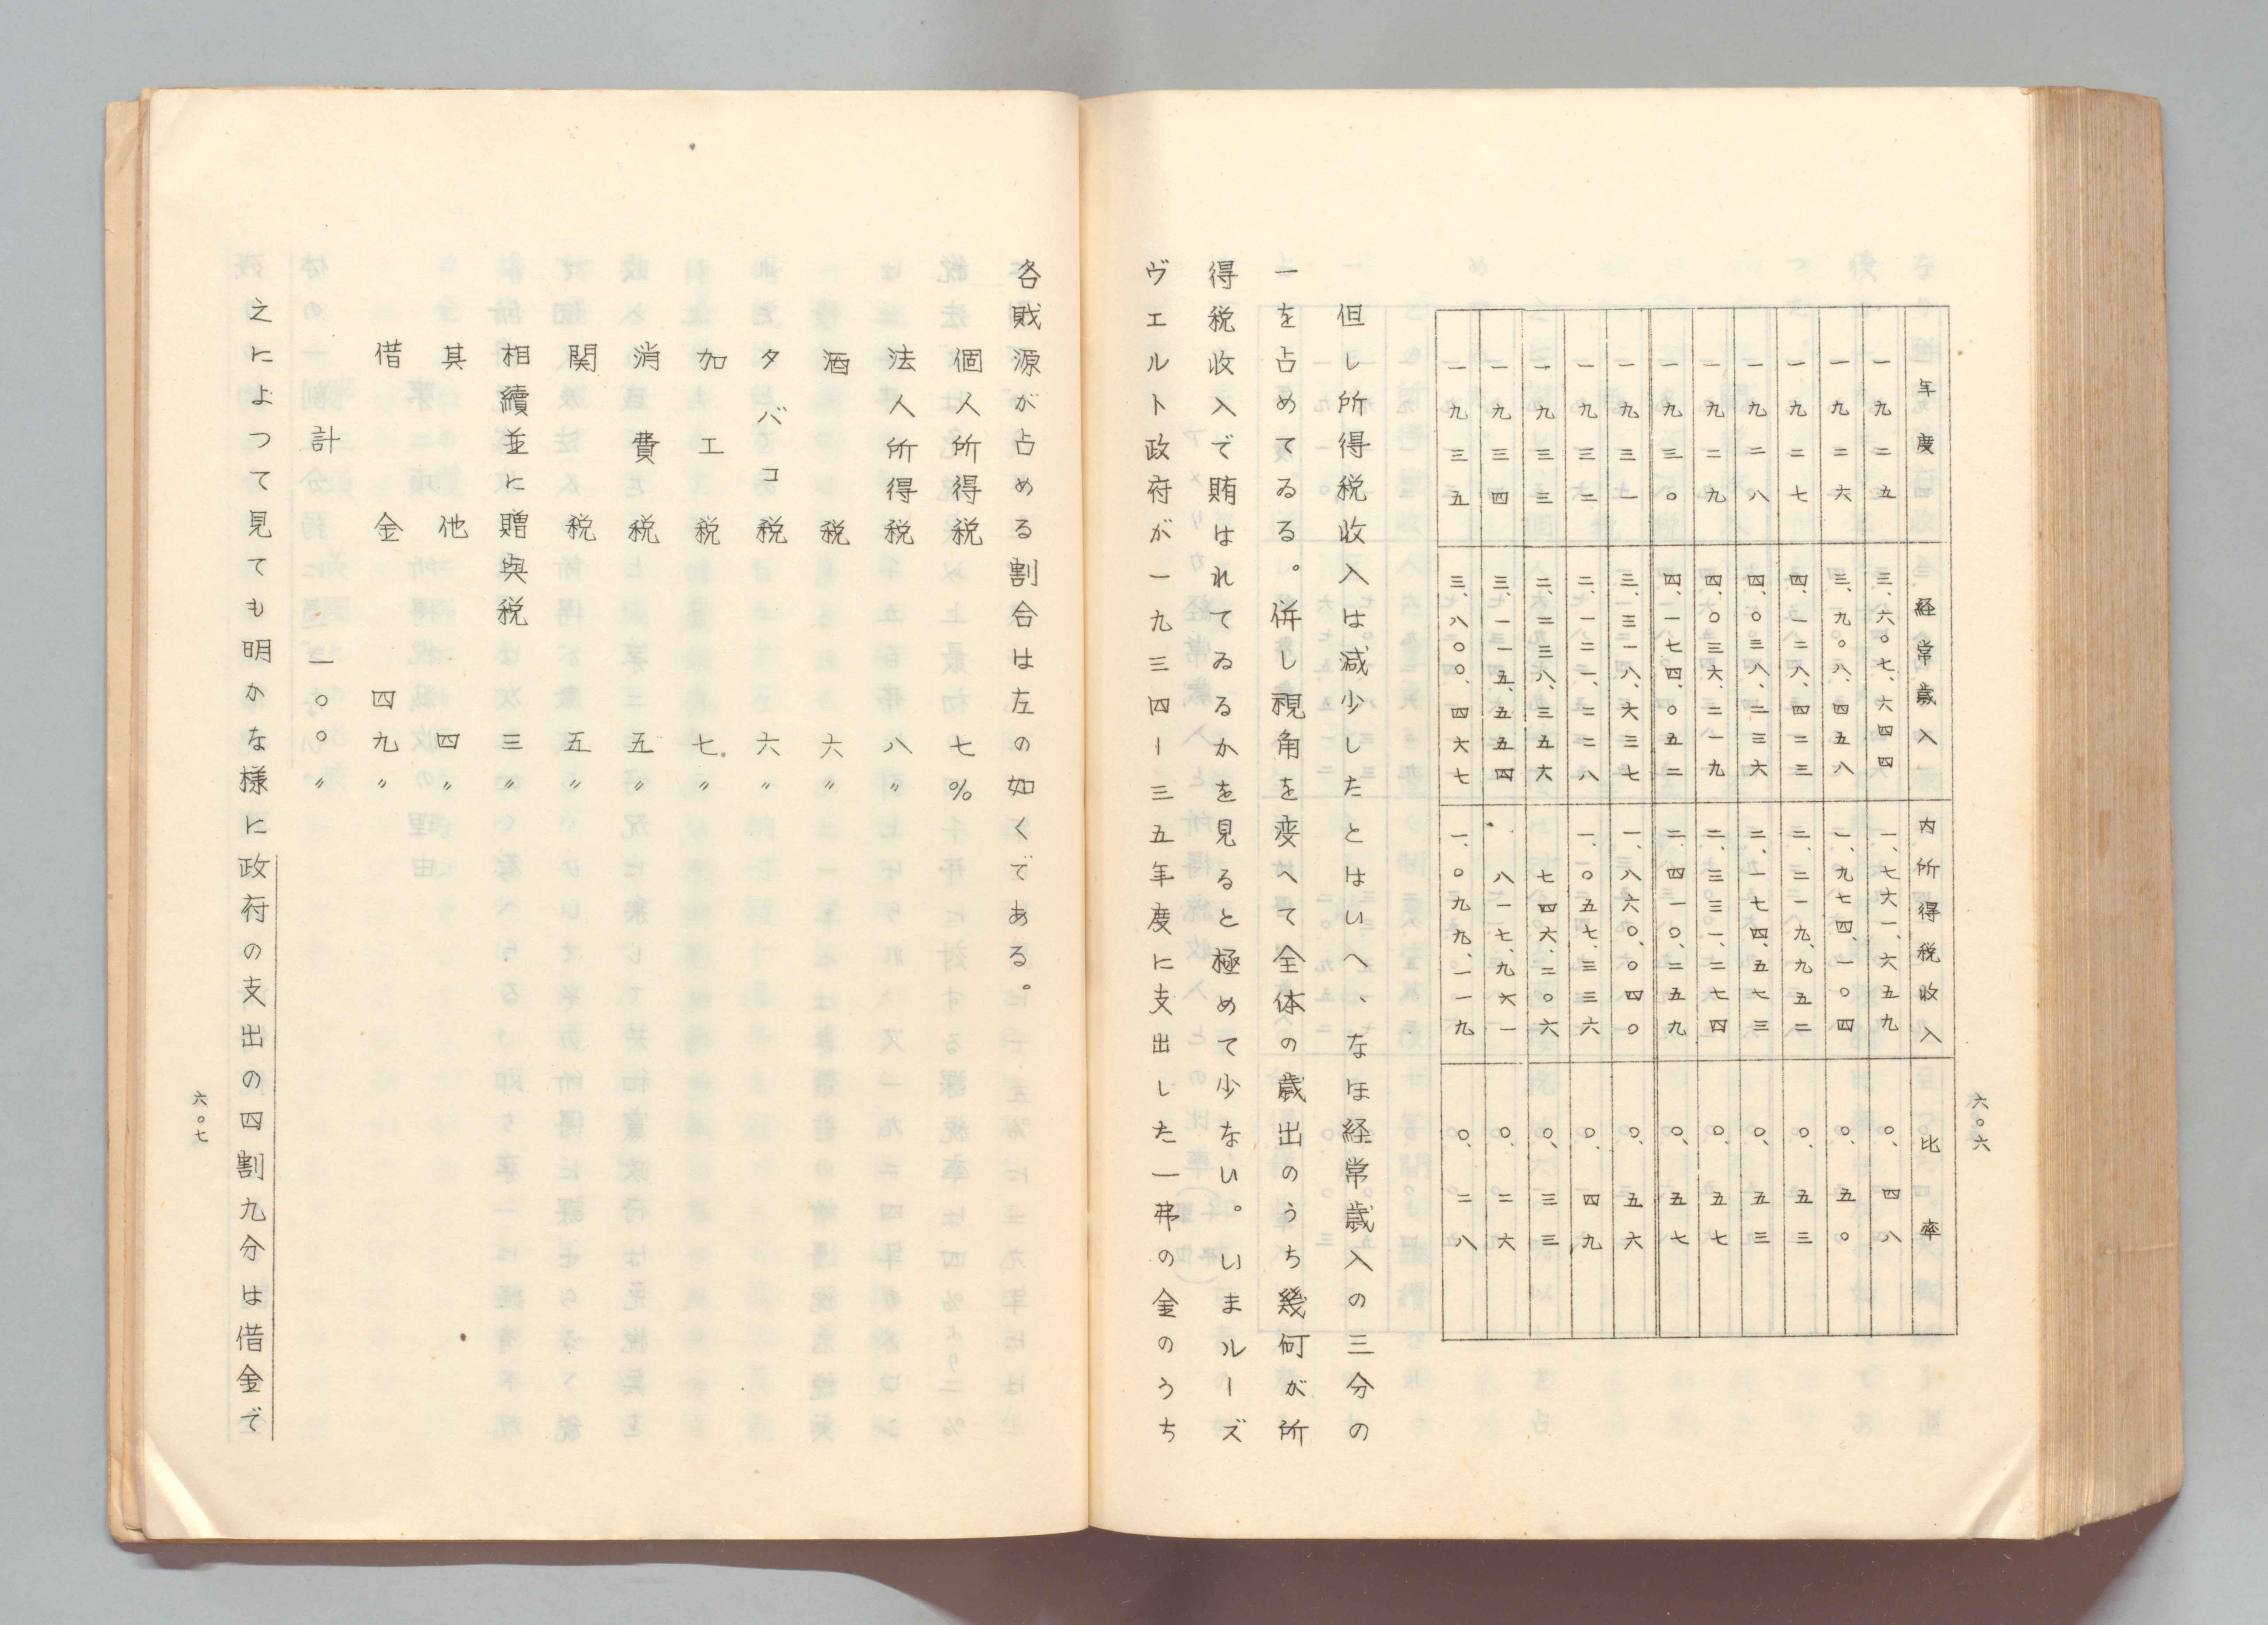 六〇六
年度 経常歳入 内所得税収入 比率
一九二五 三、六〇七、六四四 一、七六一、六五九 〇、四八
一九二六 三、九〇八、四五八 一、九七四、一〇四 〇、五〇
一九二七 四、一二八、四二三 二、二一九、九五二 〇、五三
一九二八 四、〇三八、二三六 二、一七四、五七三 〇、五三
一九二九 四、〇三六、二一九 二、三三一、二七四 〇、五七
一九三〇 四、一七四、〇五二 二、四一〇、二五九 〇、五七
一九三一 三、三一八、六三七 一、八六〇、〇四〇 〇、五六
一九三二 二、一二一、二二八 一、〇五七、三三六 〇、四九
一九三三 二、二三八、三五六 七四六、二〇六 〇、三三
一九三四 三、一一五、五五四 八一七、九六一 〇、二六
一九三五 三、八〇〇、四六七 一、〇九九、一一九 〇、二八
但し所得税收入は減少したとはいへ、なほ経常歳入の三分の
一を占めてゐる。併し視角を変へて全体の歳出のうち幾何が所
得税收入で賄はれてゐるかを見ると極めて少ない。いまルーズ
ヴェルト政府が一九三四ー三五年度に支出した一弗の金のうち
各財源が占める割合は左の如くである。
個人所得税 七%
法人所得税 八〃
酒税 六〃
タバコ税 六〃
加工税 七〃
消費税 五〃
関税 五〃
相續並に贈與税 三〃
其他 四〃
借金 四九〃
計 一〇〇〃
之によつて見ても明かな様に政府の支出の四割九分は借金で
六〇七